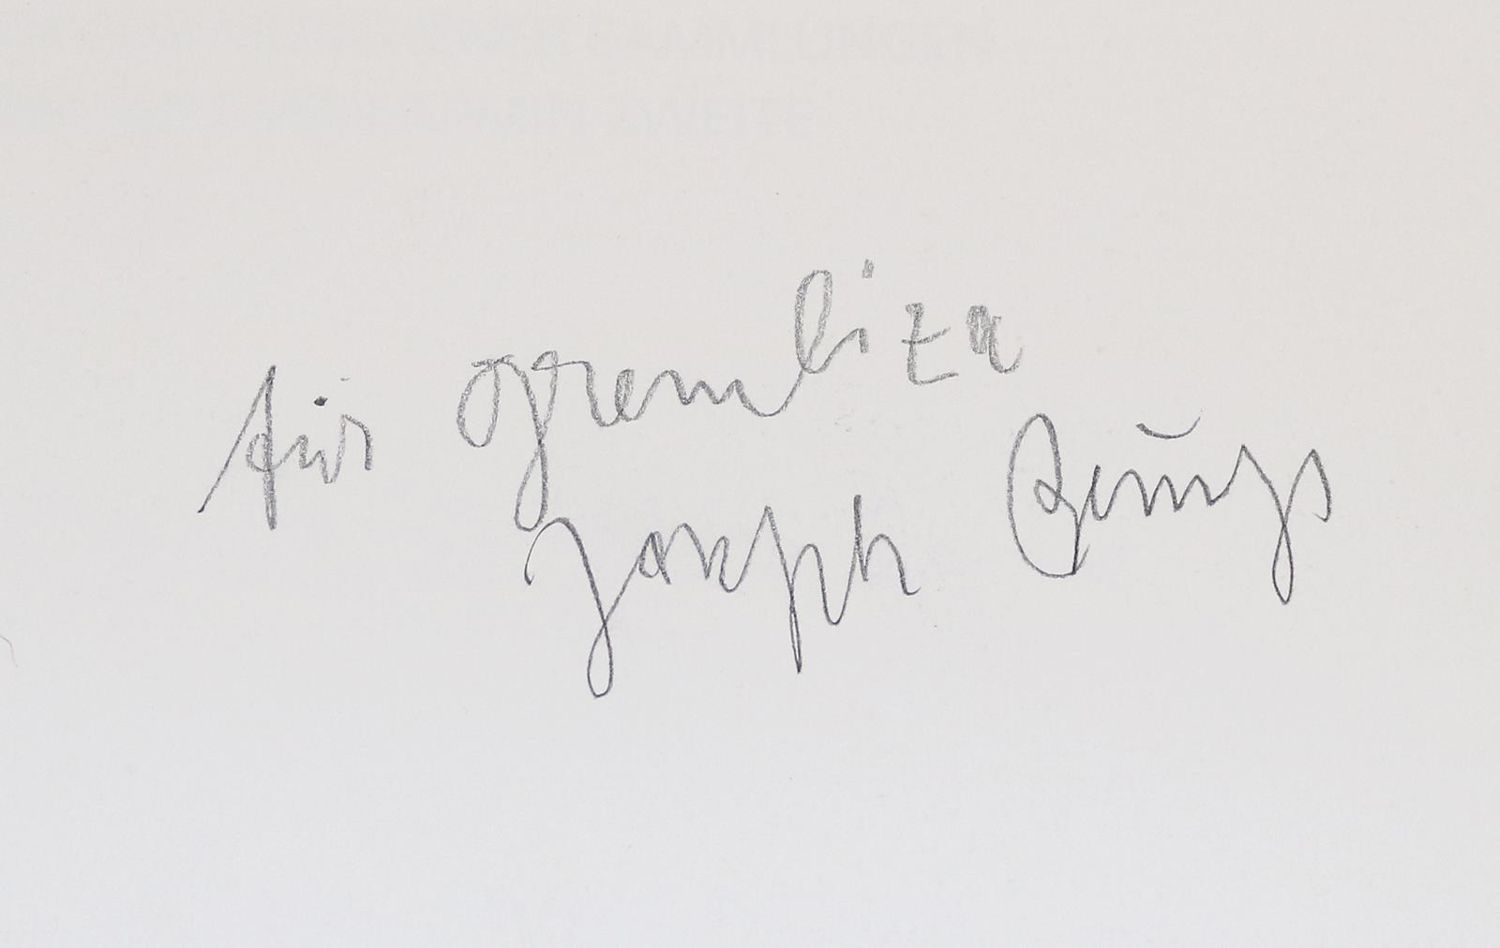 für Gremliza
Joseph Beuys